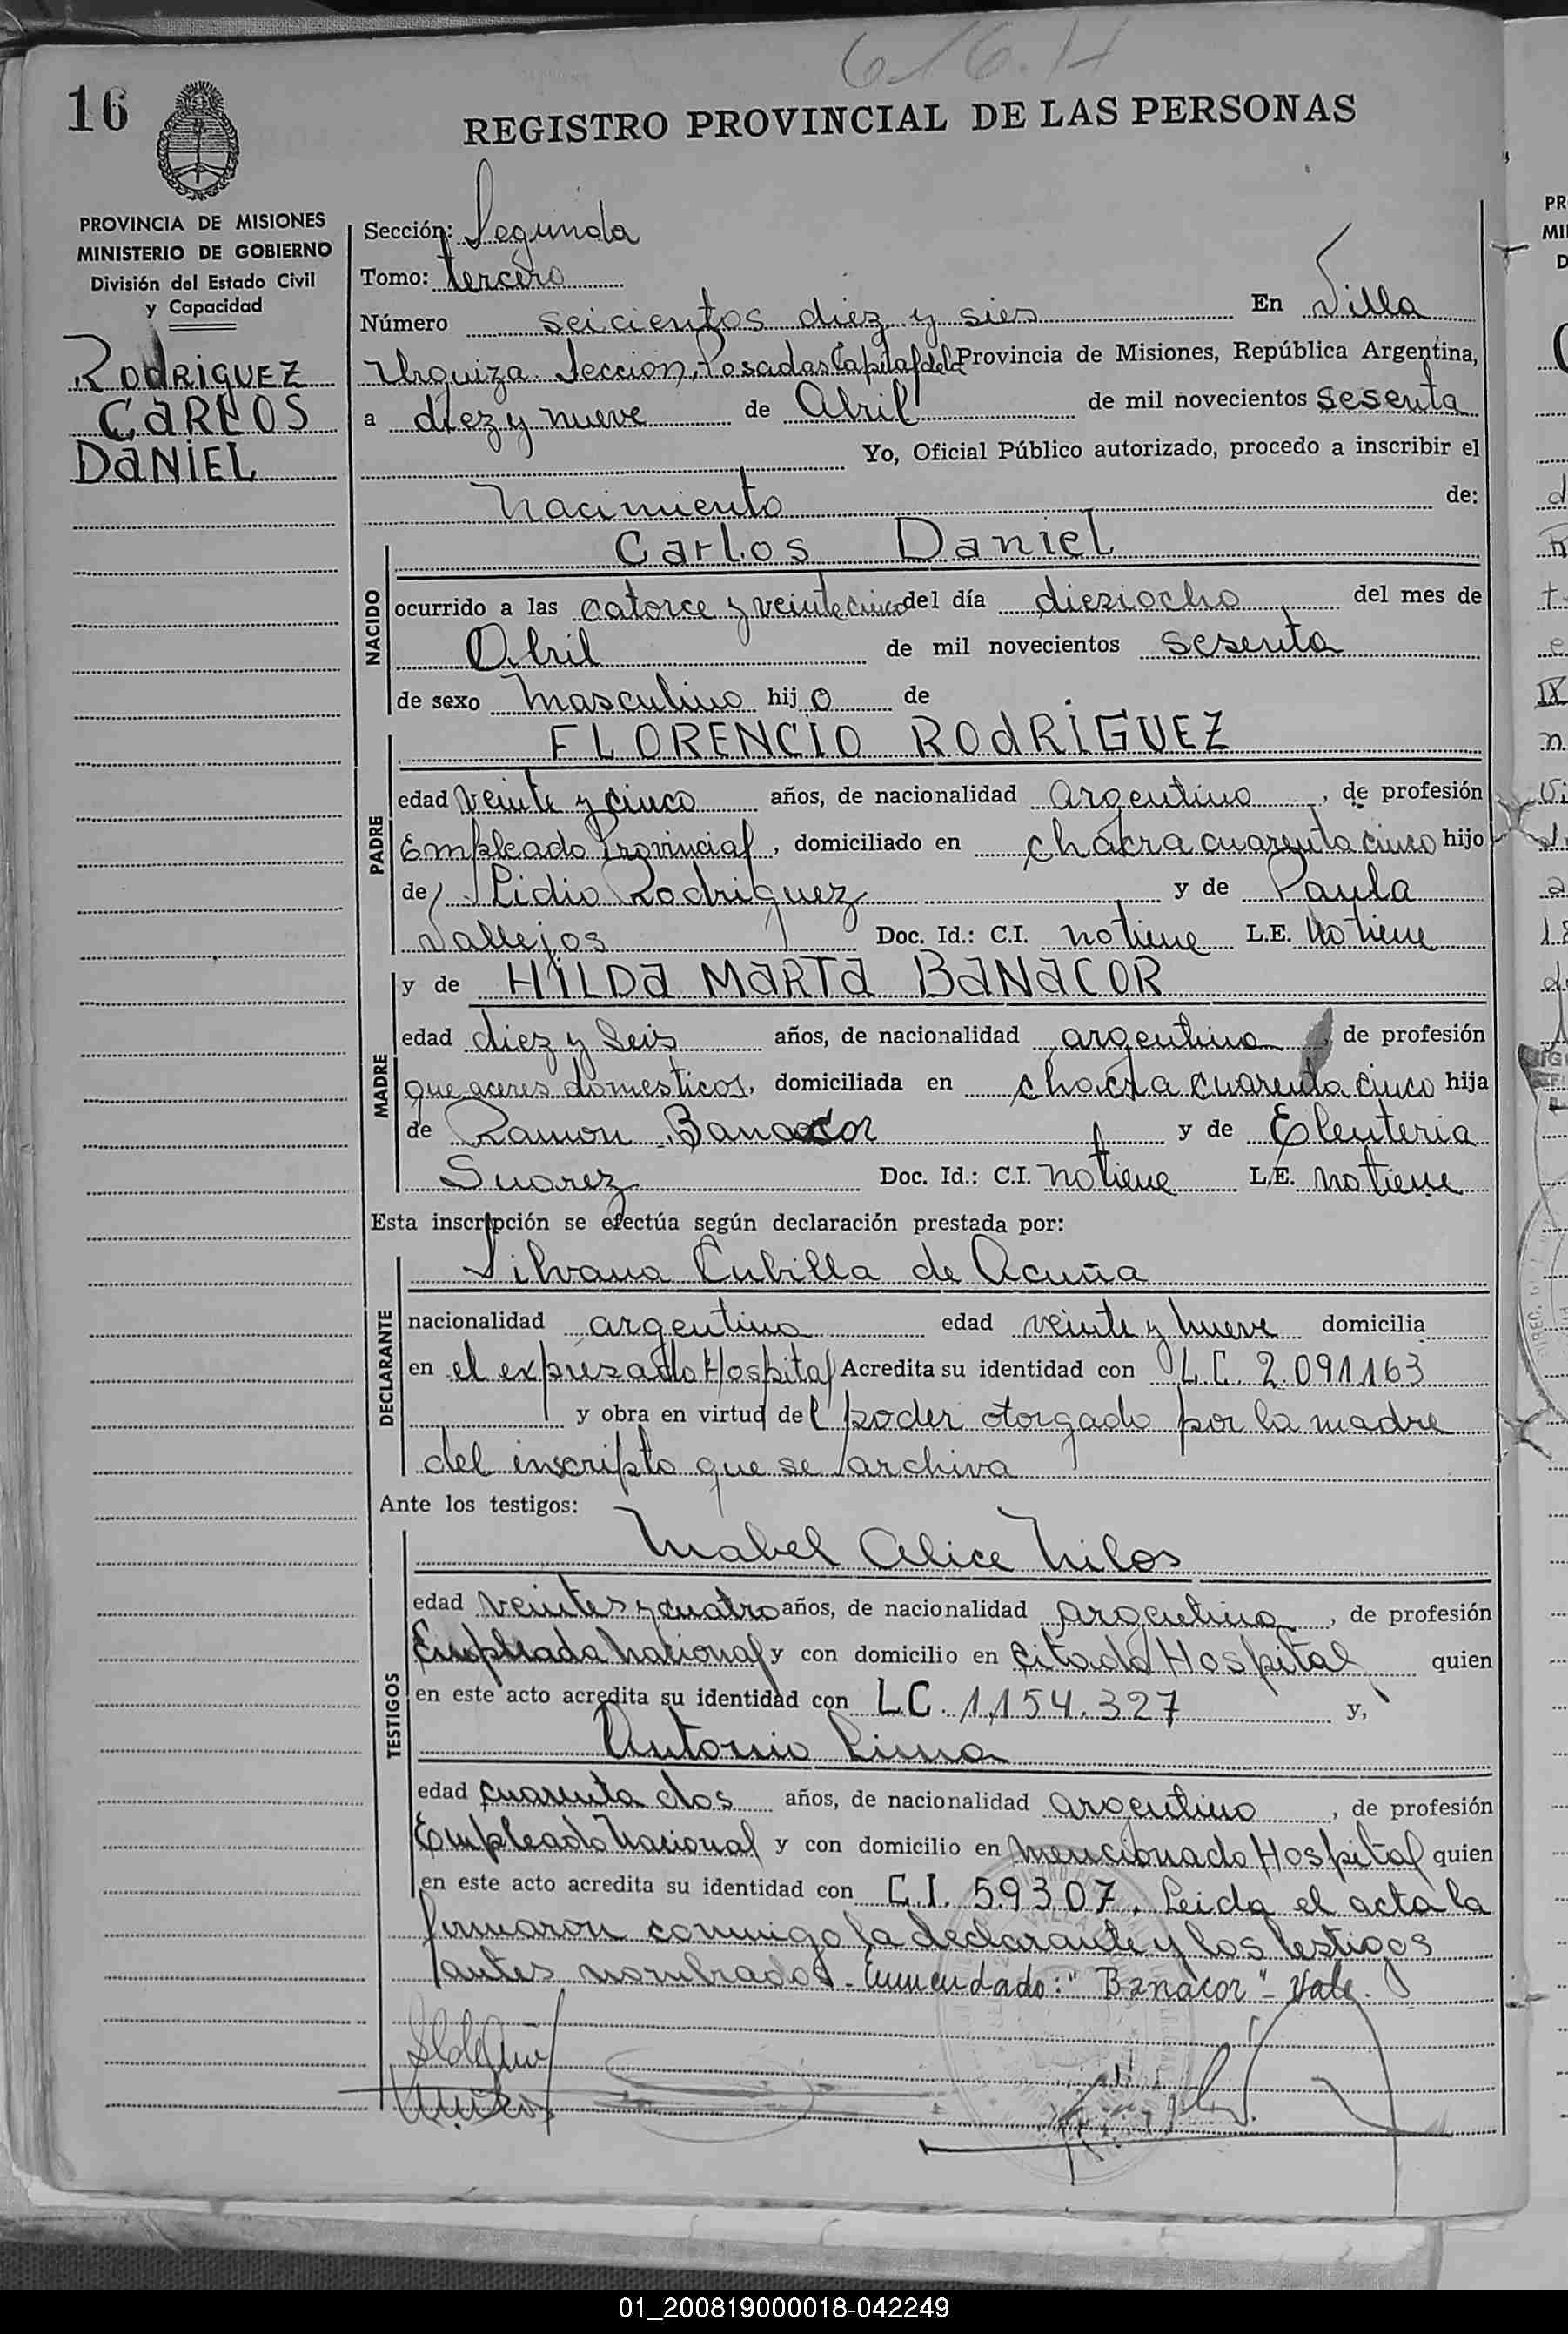 616.H
16
REGISTRO PROVINCIAL DE LAS PERSONAS
PROVINCIA DE MISIONES
MINISTERIO DE GOBIERNO
División del Estado Civil
y Capacidad
RODRIGUEZ
CARLOS
DANIEL
Sección: Segunda
Tomo: tercero
Número seicientos diez y sies En Villa
Urquiza Seccion, Posadas Capital de la Provincia de Misiones, República Argentina,
a diez y nueve de Abril de mil novecientos sesenta
Yo, Oficial Público autorizado, procedo a inscribir el
nacimiento de:
NACIDO
Carlos Daniel
ocurrido a las catorce y veinte cinco del día dieziocho del mes de
Abril de mil novecientos sesenta
de sexo masculino hijo de
PADRE
FLORENCIO RODRIGUEZ
edad veinte y cinco años, de nacionalidad argentino, de profesión
Empleado Provincial, domiciliado en chacra cuarenta cinco hijo
de Lidio Rodriguez y de Paula
Vallejos Doc. Id.: C.I. no tiene L.E. no tiene
MADRE
y de HILDA MARTA BANACOR
edad diez y seis años, de nacionalidad argentina, de profesión
que aceres domesticos, domiciliada en chacra cuarenta cinco hija
de Ramon Banacor y de Eleuteria
Suarez Doc. Id.: C.I. no tiene L.E. no tiene
Esta inscripción se efectúa según declaración prestada por:
DECLARANTE
Silvana Cubilla de Acuña
nacionalidad argentina edad veinte y nueve domicilia
en el expresado Hospital Acredita su identidad con L.C. 2.091163
y obra en virtud del poder otorgado por la madre
del inscripto que se archiva
Ante los testigos:
TESTIGOS
Mabel Alice Milos
edad veintes y cuatro años, de nacionalidad argentina, de profesión
Empleada Nacional y con domicilio en citado Hospital quien
en este acto acredita su identidad con LC. 1,154.327 y,
Antonio Lima
edad cuarenta dos años, de nacionalidad argentino, de profesión
Empleado Nacional y con domicilio en mencionado Hospital quien
en este acto acredita su identidad con C.I. 59307. Leida el acta la
firmaron conmigo la declarante y los testigos
antes nombrados.- Enmendado: "Banacor" - Vale.
01_200819000018-042249